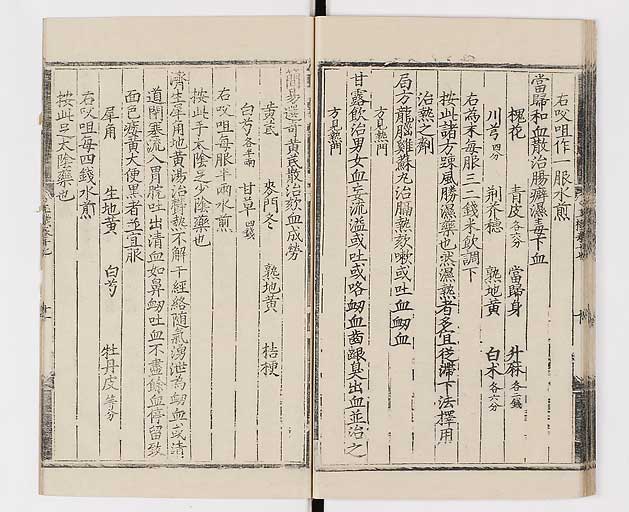 右㕮咀作一服水煎
當歸和血散治腸癖濕毒下血
槐花 青皮各六分 當歸身 升麻各一錢
川芎四分 荆芥穗 熟地黄 白术各六分
右為末每服三二錢米飲調下
按此諸方踈風勝濕藥也然濕熱者多宜從滯下法擇用
治熱之劑
局方龍腦雞蘇丸治膈熱欬嗽或吐血衂血
方見熱門
甘露飲治男女血妄流溢或吐或咯衂血齒齦臭出血並治之
方見熱門
簡易選奇黄茋散治欬血成勞
黄茋 麥門冬 熟地黄 桔梗
白芍各半兩 甘草四錢
右㕮咀每服半兩水煎
按此手太陰足少陰藥也
濟生犀角地黄湯治鬱熱不解干經絡随氣湧泄為衂血或清
道閉塞流入胃脘吐出清血如鼻衂吐血不盡餘血停留致
面色痿黄大便黑者並宜服
犀角 生地黄 白芍 牡丹皮等分
右㕮咀每四錢水煎
按此足太陰藥也